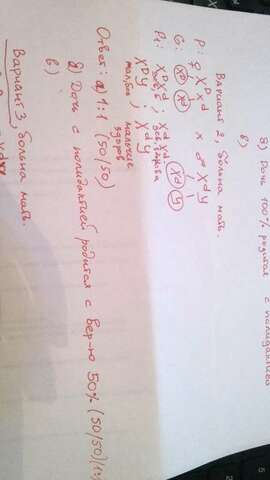 в) Дочь 100% родится с полидактилией
Вариант 2, больна мать.
P: ♀ X^D X^d x ♂ X^d Y
G: X^D X^d X^d Y
F1: X^D X^d ; X^d X^d
X^D Y ; X^d Y
мальчик здоров
Ответ: а) 1:1 (50/50)
б) Дочь с полидактилией родится с вер-ю 50% (50/50)
в)
Вариант 3, больна мать.